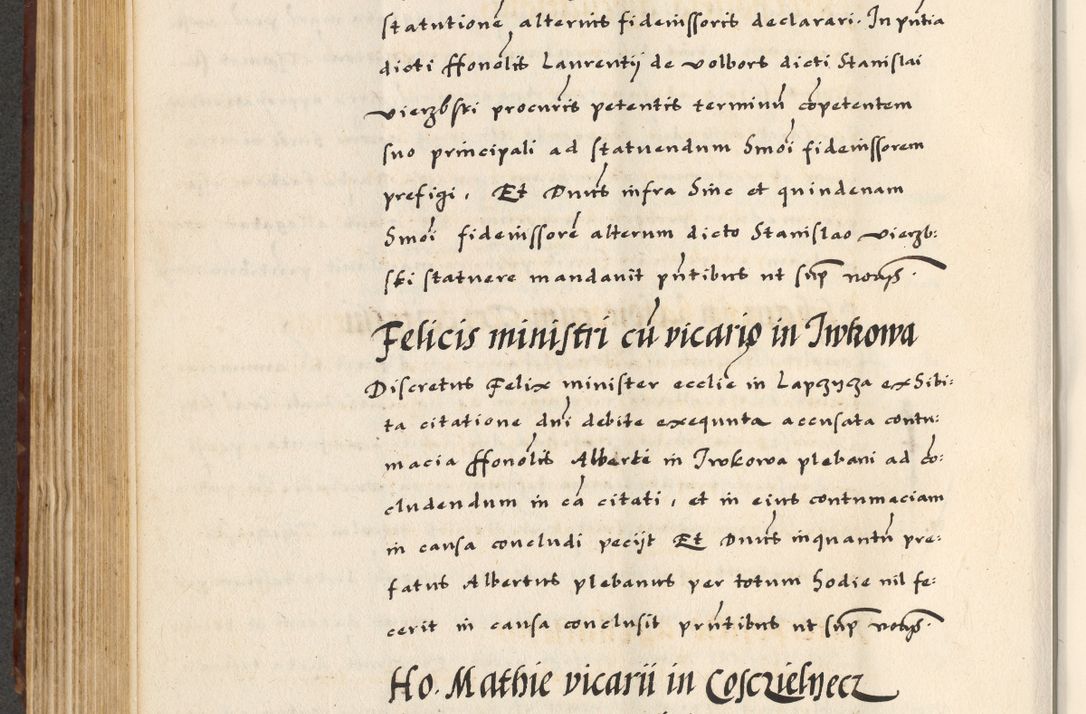 statutione alterius fideiussoris declarari. In pn̄tia
dicti ffonolis Laurentij de Volbors dicti Stanislai
Vierzbski procuris petentis terminū cōpetentem
suo principali ad statuendum Smōi fideiussorem
prefigi, Et Dnus infra Sinc et quindenam
Smōi fideiussorē alterum dicto Stanislao Vierzb:
ski statuere mandauit pn̄tibus ut sup̄
Felicis ministri cū vicario in Iwkowa
Discretus Felix minister ecclie in Lapczycza exhibi:
ta citatione dni debite exequuta accusata contu:
macia ffonolis Alberti in Iwkowa plebani ad cō:
cludendum in cā citati, et in eius contumaciam
in causa concludi pecijt Et Dnus inquantū pre:
fatus Albertus plebanus per totum hodie nil fe:
cerit in causa conclusit prn̄tibus ut sup̄
Ho. Mathie vicarii in Cosczielyecz